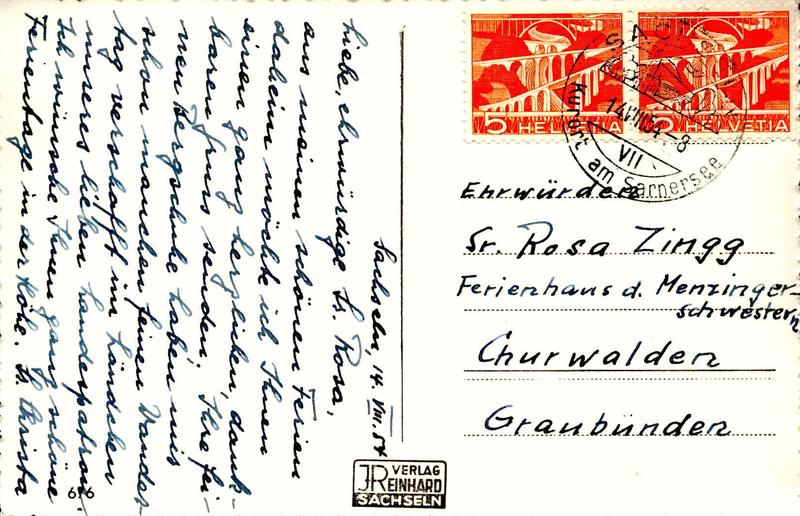 Sachseln, 14. VIII. 54
Liebe, ehrwürdige Sr. Rosa,
aus meinen schönen Ferien
daheim möchte ich Ihnen
einen ganz herzlichen, dank-
baren Gruss senden. Ihre fei-
nen Bergschuhe haben mir
schon manchen feinen Wander-
tag verschafft im Ländchen
unseres lieben Landespatrons.
Ich wünsche Ihnen ganz schöne
Ferientage in der Höhe. Sr. Christa
5 HELVETIA
5 HELVETIA
14.VIII.54.-8
VII
Kurort am Sarnersee
Ehrwürden
Sr. Rosa Zingg
Ferienhaus d. Menzinger-
schwestern
Churwalden
Graubünden
616
JR VERLAG
REINHARD
SACHSELN